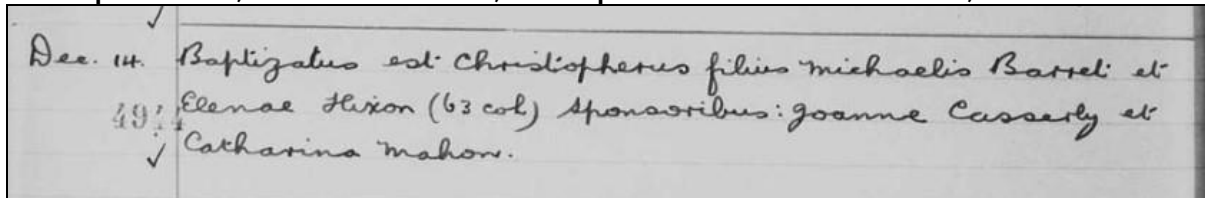 Dec. 14. Baptizatus est Christopherus filius Michaelis Barret et
4944 Elenae Hixon (63 col) sponsoribus: Joanne Casserly et
Catharina Mahon.